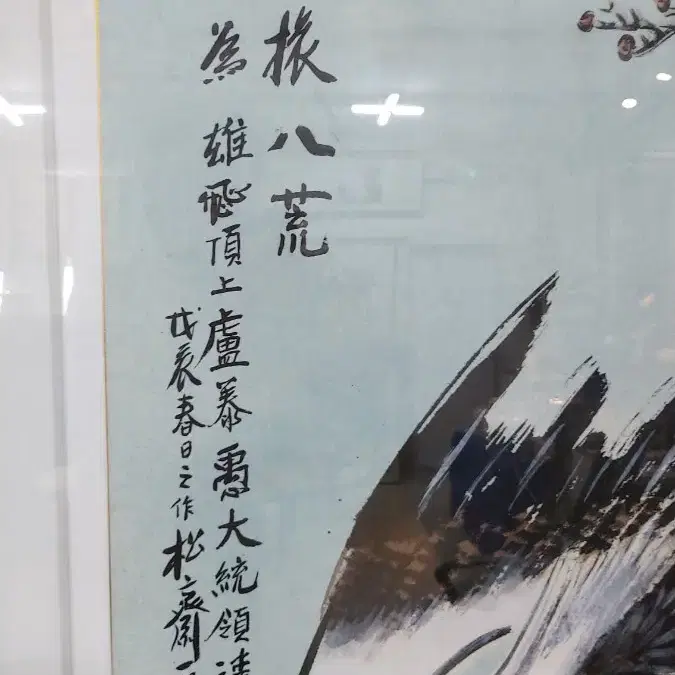 振八荒
為 雄飛頂上盧泰愚大統領
戊辰春日之作 松齋